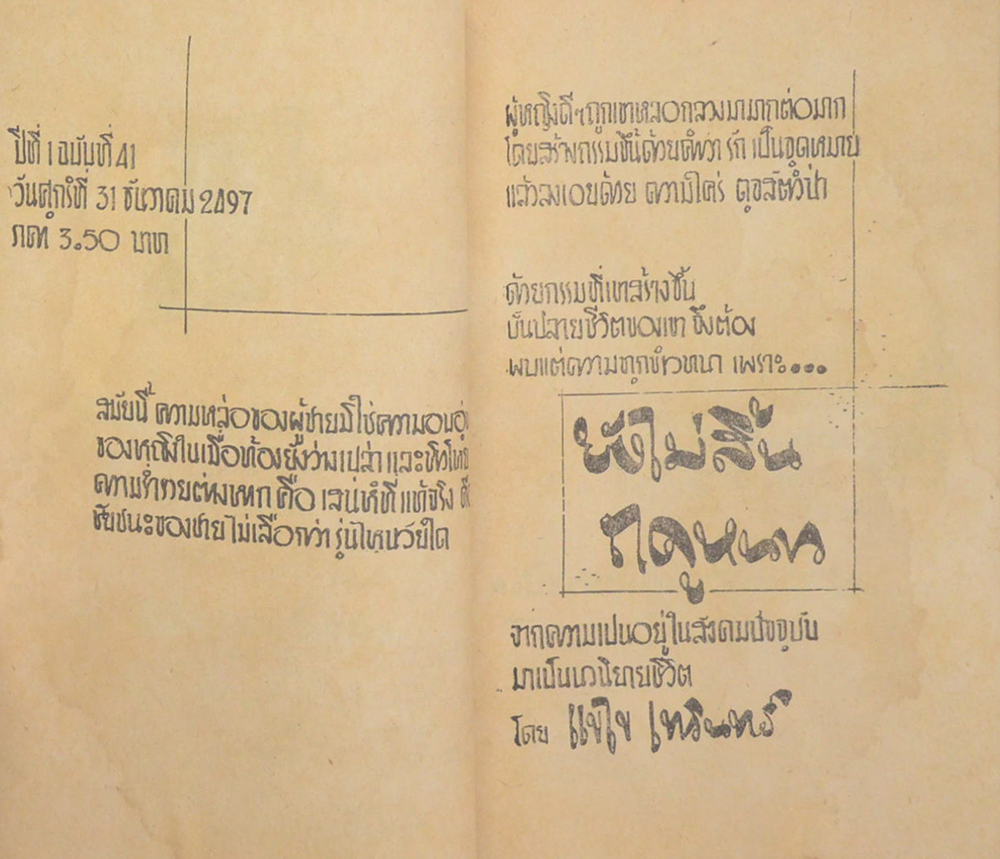 ปีที่ 1 ฉบับที่ 41
วันศุกร์ที่ 31 ธันวาคม 2497
ราคา 3.50 บาท
สมัยนี้ ความหล่อของผู้ชายมิใช่ความอบอุ่น
ของหญิงในเมื่อท้องยังว่างเปล่า และหิวโหย
ความร่ำรวยต่างหาก คือ เสน่ห์ที่แท้จริง
ชัยชนะของชายไม่เลือกว่า รุ่นไหนวัยใด
ผู้หญิงดีๆถูกเขาหลอกลวงมามากต่อมาก
โดยสร้างกรรมขึ้นด้วยคำว่า รัก เป็นจุดหมาย
แล้วลงเอยด้วย ความใคร่ ดุจสัตว์ป่า
ด้วยกรรมที่เขาสร้างขึ้น
บั้นปลายชีวิตของเขา จึงต้อง
พบแต่ความทุกข์ เพราะ...
ยังไม่สิ้น
ฤดูหนาว
จากความเป็นอยู่ในสังคมปัจจุบัน
มาเป็นนวนิยายชีวิต
โดย แขไข เทวินทร์